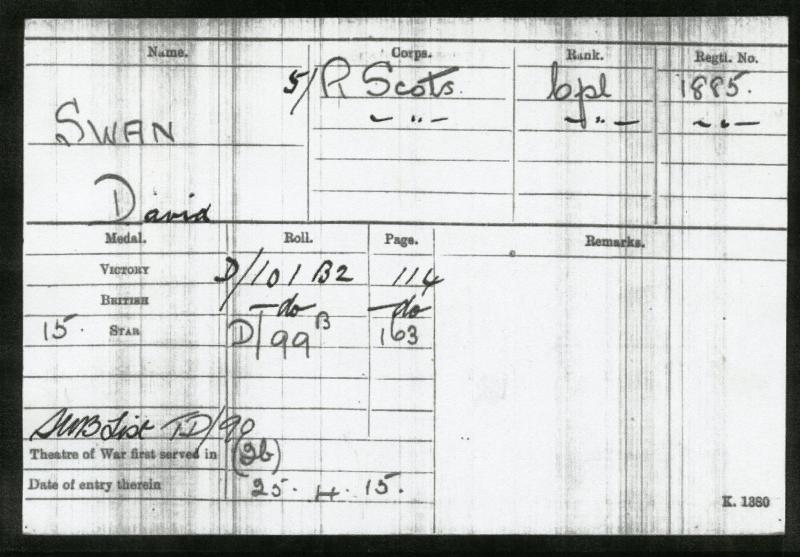 Name. Corps. Rank. Regtl. No.
5/R Scots. Cpl 1885.
— " — — " — — " —
SWAN
David
Medal. Roll. Page. Remarks.
VICTORY D/101 B2 114
BRITISH —do —do
15. STAR D/99 B 163
SWB List TD/90
Theatre of War first served in (2b)
Date of entry therein 25. 4. 15.
K. 1380